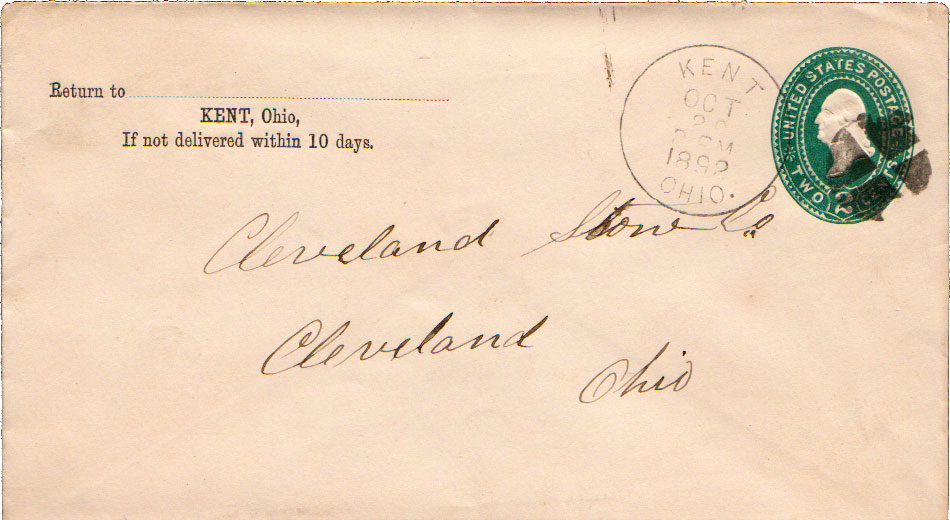 Return to
KENT, Ohio,
If not delivered within 10 days.
KENT
OCT
M
189
OHIO.
UNITED STATES POSTAGE
TWO 2 CENTS
Cleveland Stone Co
Cleveland
Ohio